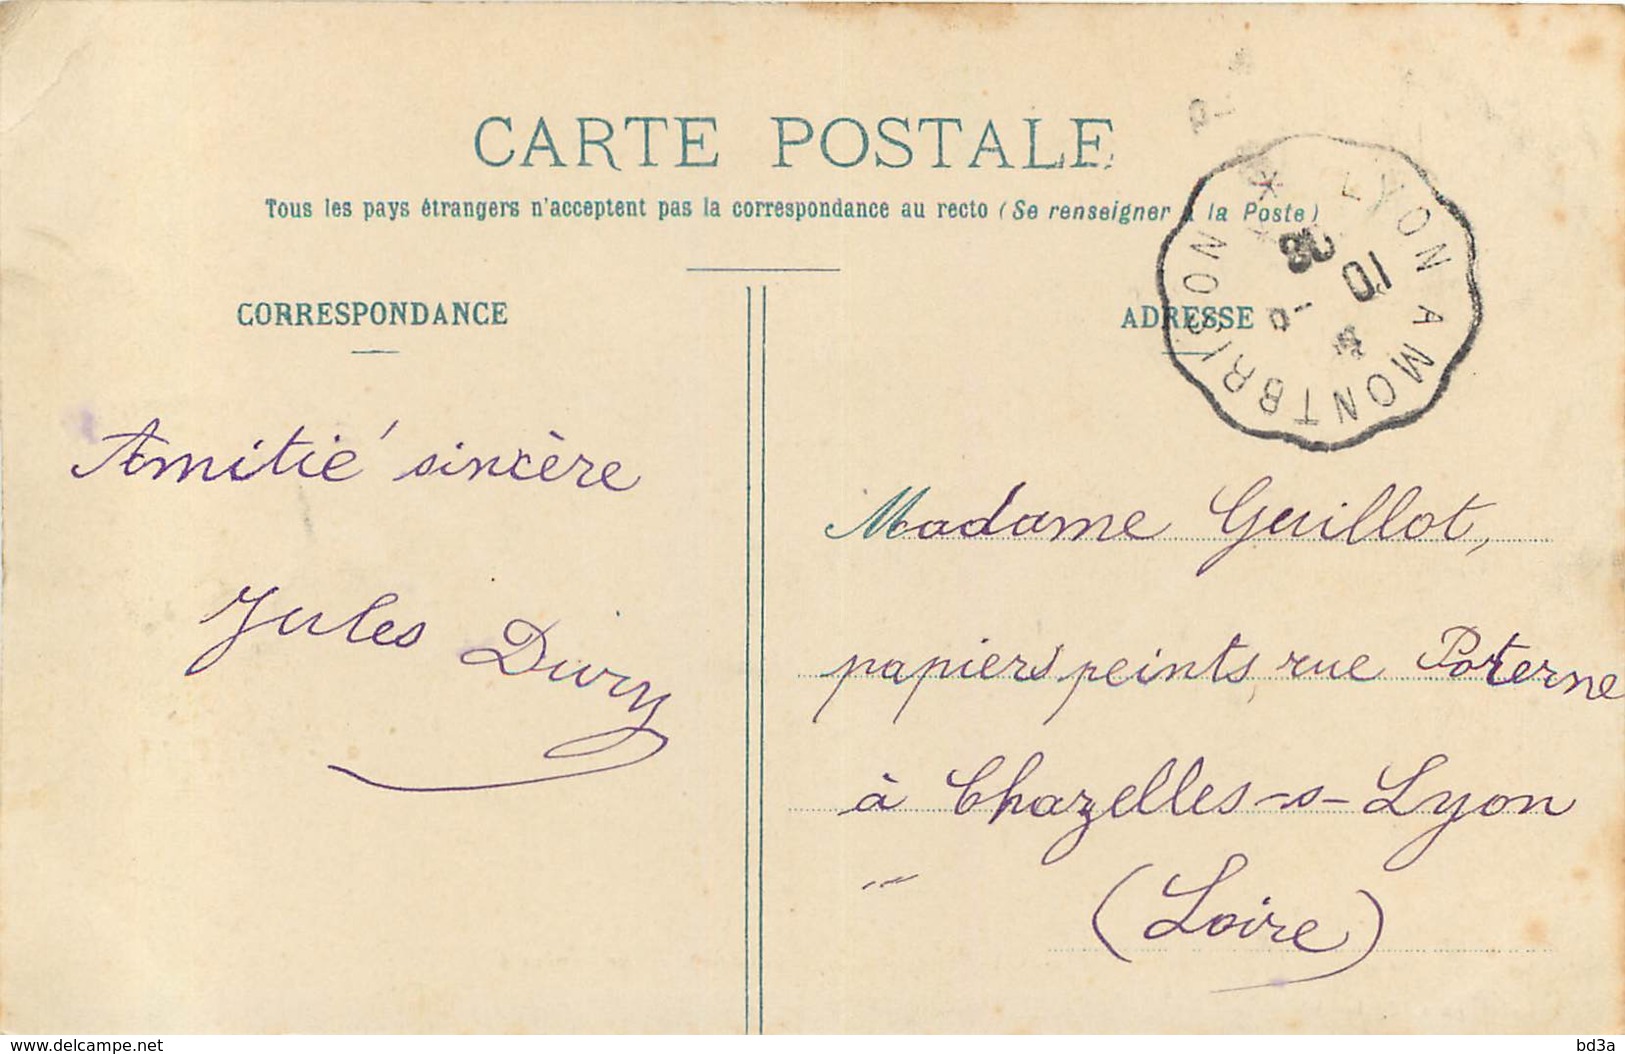 CARTE POSTALE
Tous les pays étrangers n'acceptent pas la correspondance au recto (Se renseigner à la Poste)
CORRESPONDANCE
ADRESSE
LYON A MONTBRISON
10
Amitié sincère
Jules Divry
Madame Guillot,
papiers peints, rue Poterne
à Chazelles-s-Lyon
(Loire)
www.delcampe.net
bd3a